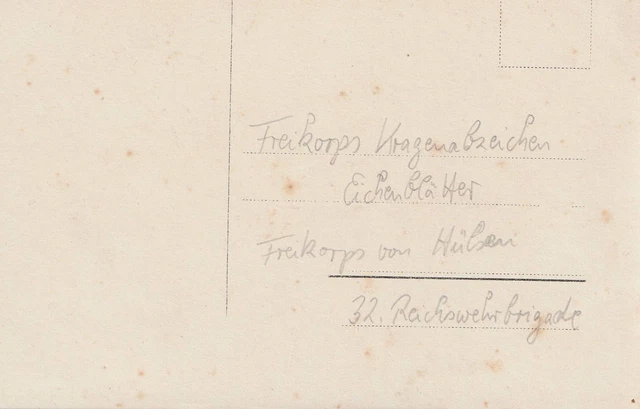 Freikorps Kragenabzeichen
Eichenblätter
Freikorps von Hülsen
32. Reichswehrbrigade